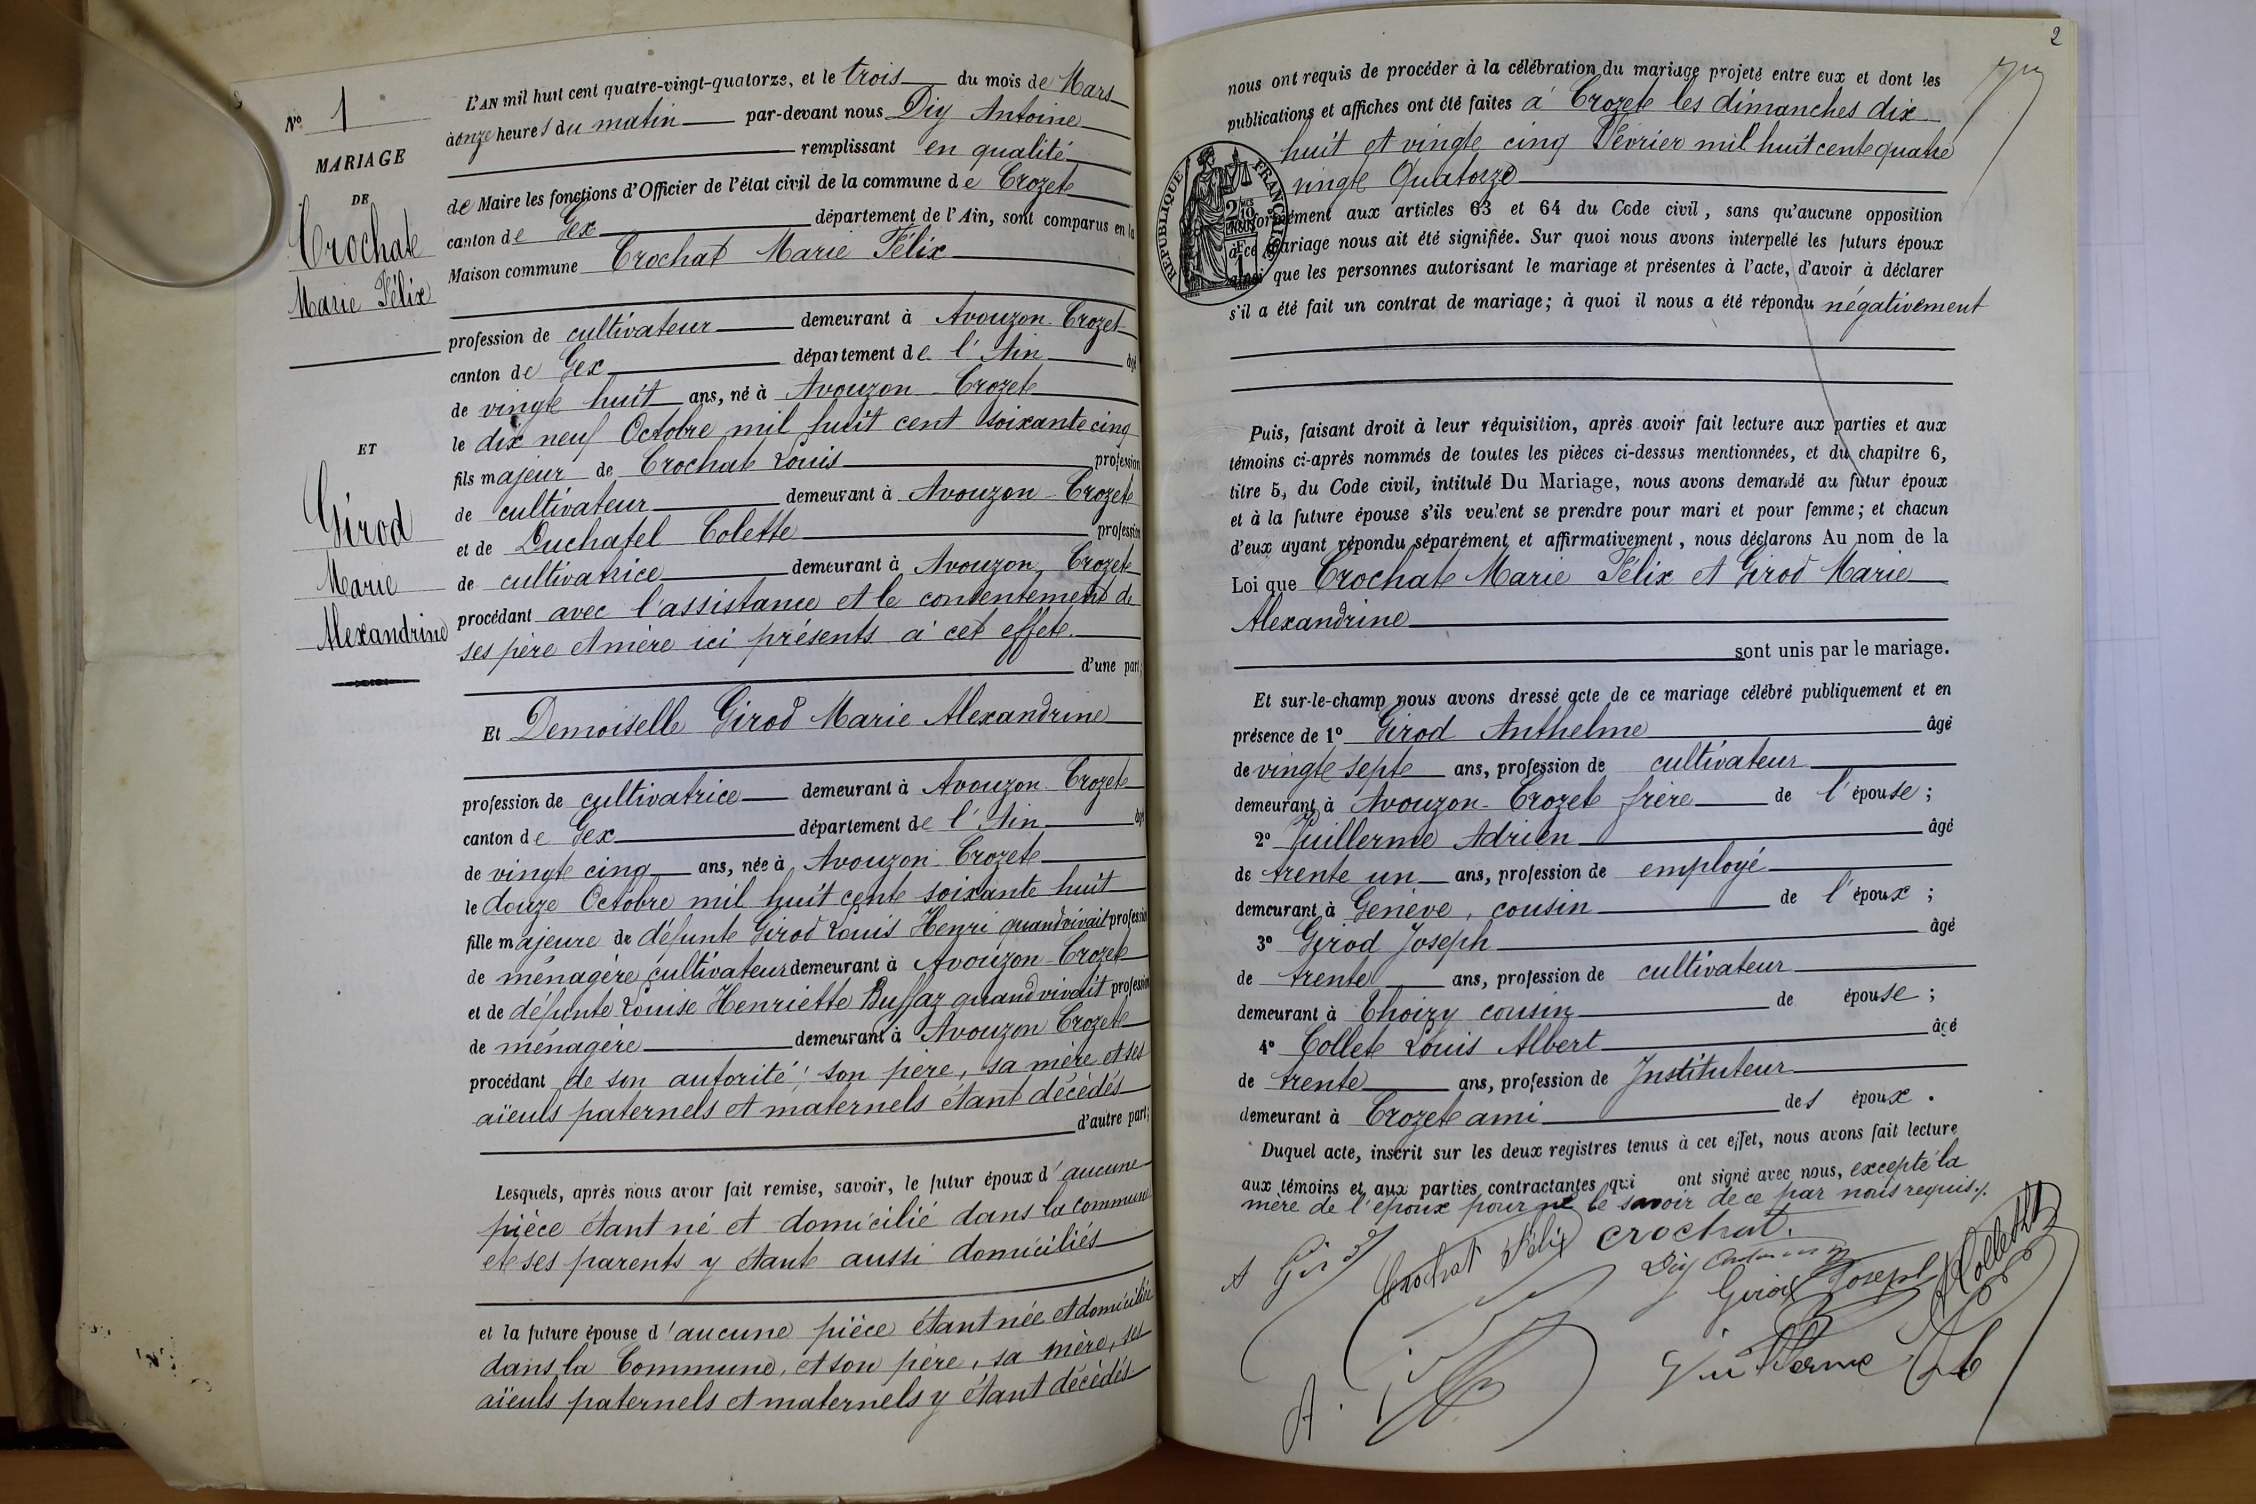 Nº 1
MARIAGE
DE
Crochat
Marie Félix
ET
Girod
Marie
Alexandrine
L'AN mil huit cent quatre-vingt-quatorze, et le trois du mois de Mars
à onze heures du matin par-devant nous Diy Antoine
remplissant en qualité
de Maire les fonctions d'Officier de l'état civil de la commune de Crozet
canton de Gex département de l'Ain, sont comparus en la
Maison commune Crochat Marie Félix
profession de cultivateur demeurant à Avouzon Crozet
canton de Gex département de l'Ain âgé
de vingt huit ans, né à Avouzon Crozet
le dix neuf Octobre mil huit cent soixante cinq
fils majeur de Crochat Louis profession
de cultivateur demeurant à Avouzon - Crozet
et de Duchatel Colette profession
de cultivatrice demeurant à Avouzon Crozet
procédant avec l'assistance et le consentement de
ses père et mère ici présents à cet effet.
d'une part;
Et Demoiselle Girod Marie Alexandrine
profession de cultivatrice demeurant à Avouzon Crozet
canton de Gex département de l'Ain âgé
de vingt cinq ans, née à Avouzon Crozet
le douze Octobre mil huit cent soixante huit
fille majeure de défunt Girod Louis Henri quand vivait profession
de ménagère cultivateur demeurant à Avouzon - Crozet
et de défunte Louise Henriette Buffaz quand vivait profession
de ménagère demeurant à Avouzon Crozet
procédant de son autorité, son père, sa mère et ses
aïeuls paternels et maternels étant décédés
d'autre part;
Lesquels, après nous avoir fait remise, savoir, le futur époux d'aucune
pièce étant né et domicilié dans la commune
et ses parents y étant aussi domiciliés
et la future épouse d'aucune pièce étant née et domiciliée
dans la Commune, et son père, sa mère, ses
aïeuls paternels et maternels y étant décédés
2
nous ont requis de procéder à la célébration du mariage projeté entre eux et dont les
publications et affiches ont été faites à Crozet les dimanches dix
huit et vingt cinq Février mil huit cent quatre
vingt Quatorze
RÉPUBLIQUE FRANÇAISE
formément aux articles 63 et 64 du Code civil, sans qu'aucune opposition
mariage nous ait été signifiée. Sur quoi nous avons interpellé les futurs époux
ainsi que les personnes autorisant le mariage et présentes à l'acte, d'avoir à déclarer
s'il a été fait un contrat de mariage; à quoi il nous a été répondu négativement
Puis, faisant droit à leur réquisition, après avoir fait lecture aux parties et aux
témoins ci-après nommés de toutes les pièces ci-dessus mentionnées, et du chapitre 6,
titre 5, du Code civil, intitulé Du Mariage, nous avons demandé au futur époux
et à la future épouse s'ils veulent se prendre pour mari et pour femme; et chacun
d'eux ayant répondu séparément et affirmativement, nous déclarons Au nom de la
Loi que Crochat Marie Félix et Girod Marie
Alexandrine
sont unis par le mariage.
Et sur-le-champ nous avons dressé acte de ce mariage célébré publiquement et en
présence de 1º Girod Anthelme âgé
de vingt sept ans, profession de cultivateur
demeurant à Avouzon - Crozet frère de l'épouse;
2º Guillerme Adrien âgé
de trente un ans, profession de employé
demeurant à Genève, cousin de l'époux;
3º Girod Joseph âgé
de trente ans, profession de cultivateur
demeurant à Thoiry cousin de épouse;
4º Collet Louis Albert âgé
de trente ans, profession de Instituteur
demeurant à Crozet ami des époux.
Duquel acte, inscrit sur les deux registres tenus à cet effet, nous avons fait lecture
aux témoins et aux parties contractantes qui ont signé avec nous, excepté la
mère de l'époux pour ne le savoir de ce par nous requis.
A Girod Crochat Félix Crochat.
Diy Antoine
Girod Joseph
Guillerme